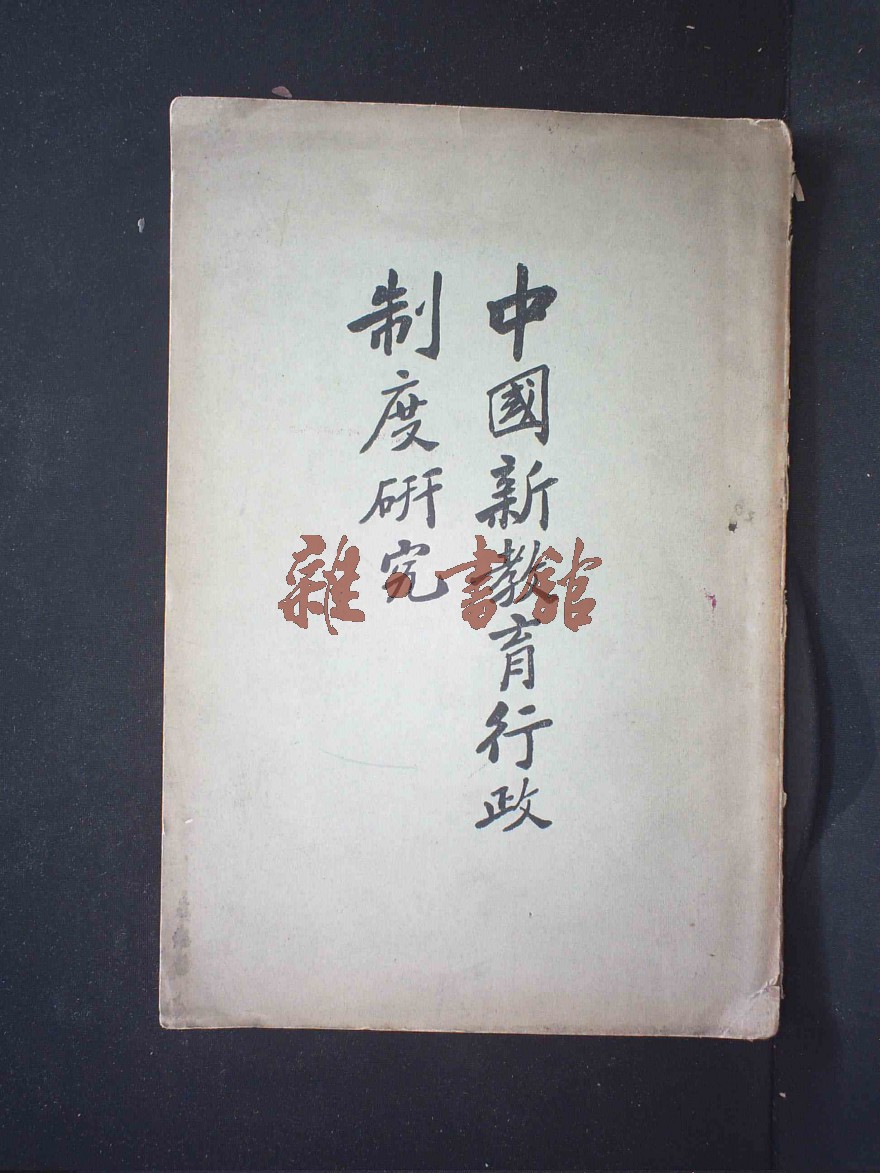 中國新教育行政
制度研究
雜書館